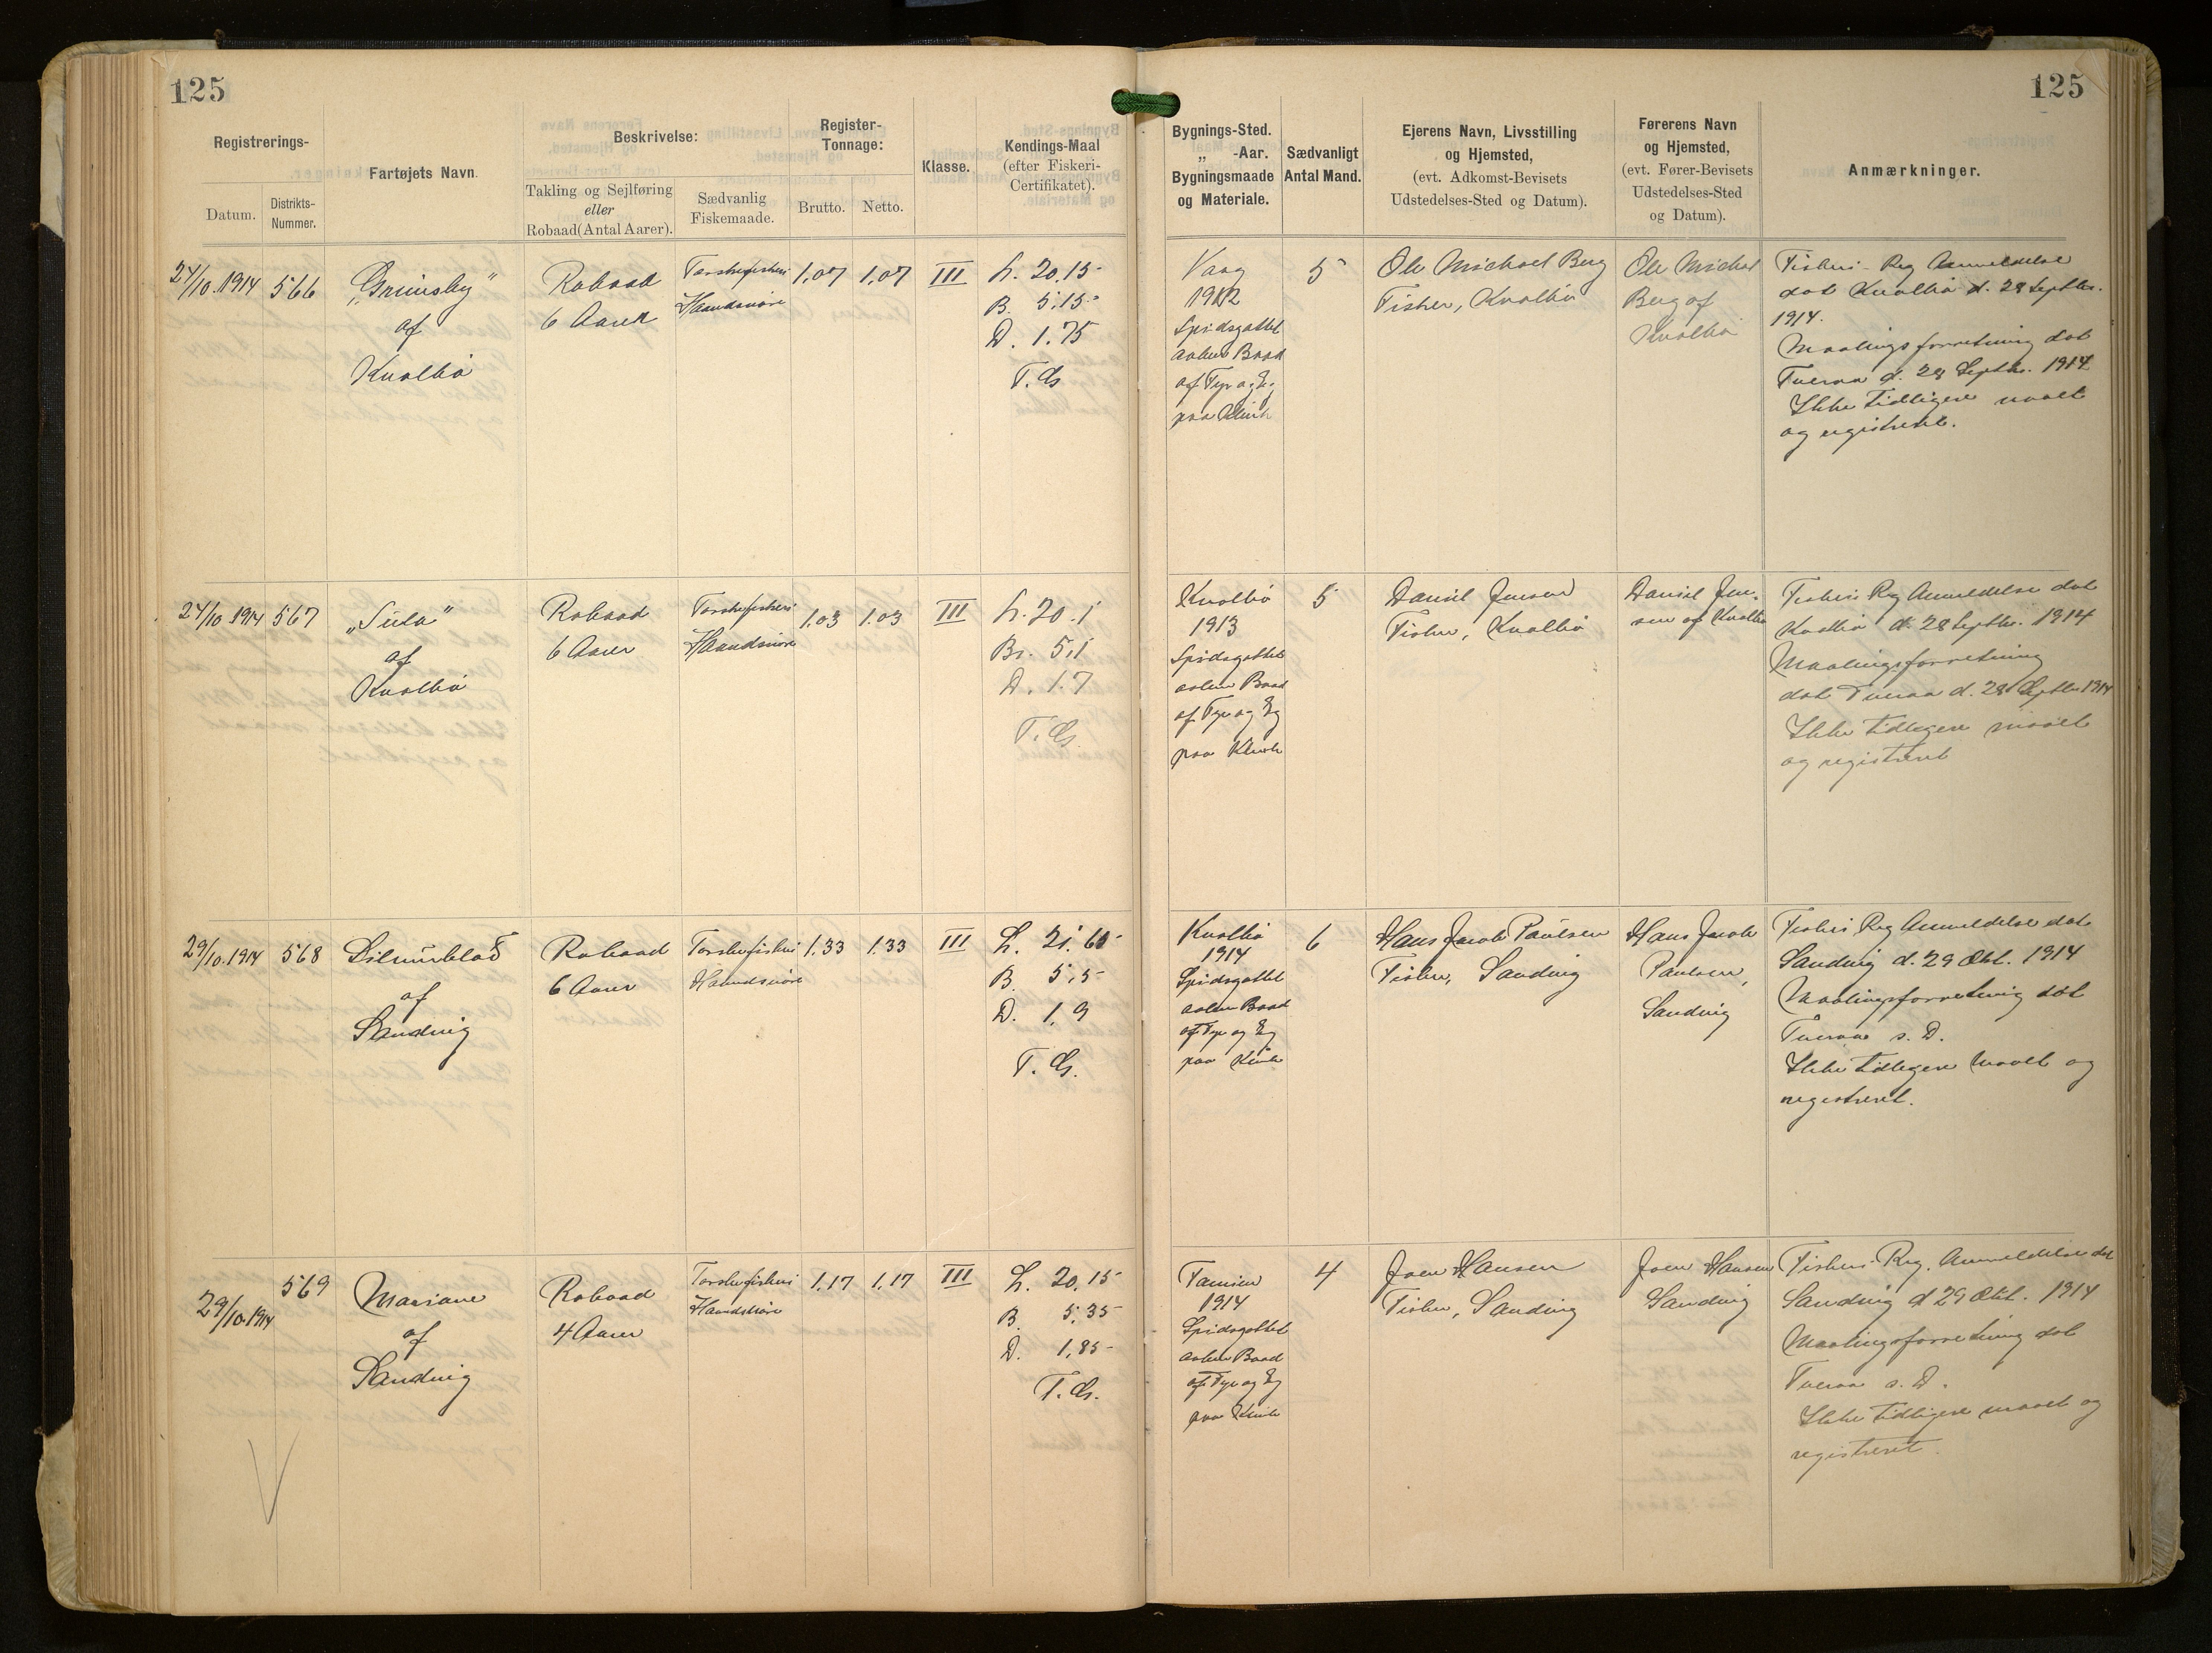 125
125
Registrerings-
Datum.
Distrikts-
Nummer.
Fartøjets Navn.
Beskrivelse:
Takling og Sejlføring
eller
Robaad (Antal Aarer).
Sædvanlig
Fiskemaade.
Register-
Tonnage:
Brutto.
Netto.
Klasse.
Kendings-Maal
(efter Fiskeri-
Certifikatet).
Bygnings-Sted.
„ -Aar.
Bygningsmaade
og Materiale.
Sædvanligt
Antal Mand.
Ejerens Navn, Livsstilling
og Hjemsted,
(evt. Adkomst-Bevisets
Udstedelses-Sted og Datum).
Førerens Navn
og Hjemsted,
(evt. Fører-Bevisets
Udstedelses-Sted
og Datum).
Anmærkninger.
24/10.1914
566
„Grimsby"
af
Kvalbø
Robaad
6 Aarer
Torskefiskeri
Haandsnøre
1,07
1,07
III
L. 20,15
B. 5,15
D. 1.75
T. G.
Vaag
1912
Spidsgattet
aaben Baad
af Fyr og Eg
paa Klink
5
Ole Michael Berg
Fisker, Kvalbø
Ole Michael
Berg af
Kvalbø
Fiskeri-Reg Anmeldelse
dat Kvalbø d. 28 Septbr.
1914.
Maalingsforretning dat
Tveraa d. 28 Septbr. 1914
Ikke tidligere maalt
og registreret.
24/10 1914
567
„Sula"
af
Kvalbø
Robaad
6 Aarer
Torskefiskeri
Haandsnøre
1.03
1.03
III
L. 20.1
Br. 5,1
D. 1.7
T. G.
Kvalbø
1913
Spidsgattet
aaben Baad
af Fyr og Eg
paa Klink
5
Daniel Jensen
Fisker, Kvalbø
Daniel Jen-
sen af Kvalbø
Fiskeri Reg Anmeldelse dat
Kvalbø d. 28 Septbr. 1914
Maalingsforretning
dat Tveraa d. 28 Septbr 1914
Ikke tidligere maalt
og registreret
29/10.1914
568
af
Sandvig
Robaad
6 Aarer
Torskefiskeri
Haandsnøre
1.33
1.33
III
L. 21.60
B. 5,5
D. 1,9
T. G.
Kvalbø
1914
Spidsgattet
aaben Baad
af Fyr og Eg
paa Klink
6
Hans Jacob Paulsen
Fisker, Sandvig
Hans Jacob
Paulsen,
Sandvig
Fiskeri Reg Anmeldelse dat
Sandvig d. 29 Okt. 1914
Maalingsforretning dat
Tveraa s. D.
Ikke tidligere maalt og
registreret.
29/10.1914
569
Mariane
af
Sandvig
Robaad
4 Aarer
Torskefiskeri
Haandsnøre
1,17
1,17
III
L. 20,15
B. 5,35
D. 1,85
T. G.
Famien
1914
Spidsgattet
aaben Baad
af Fyr og Eg
paa Klink
4
Joen Hansen
Fisker, Sandvig
Joen Hansen
Sandvig
Fiskeri-Reg. Anmeldelse dat
Sandvig d 29 Okt. 1914
Maalingsforretning dat
Tveraa s. D.
Ikke tidligere maalt og
registreret.